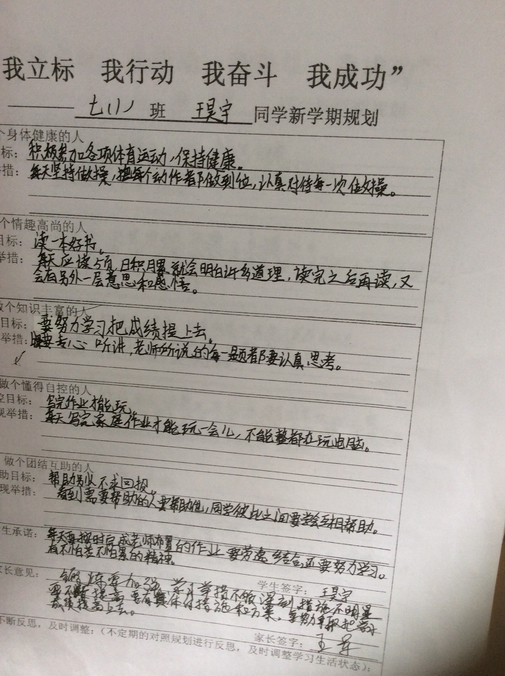 我立标 我行动 我奋斗 我成功”
七(1) 班 王昊宇 同学新学期规划
个身体健康的人
标：积极参加各项体育运动，保持健康。
措：每天坚持做操，把每个动作都做到位，认真对待每一次做操。
个情趣高尚的人
目标：读一本好书。
举措：每天应读5页，日积月累就会明白许多道理，读完之后再读，又
会有另外一层意思和感悟。
做个知识丰富的人
目标：要努力学习把成绩提上去。
举措：要专心听讲，老师所说的每一题都要认真思考。
做个懂得自控的人
控目标：写完作业才能玩。
现举措：每天写完家庭作业才能玩一会儿，不能整都在玩电脑。
做个团结互助的人
助目标：帮助别人不求回报。
现举措：看到需要帮助的人要帮助他，同学彼此之间要学会互相帮助。
生承诺：每天要按时完成老师布置的作业 要劳逸结合，还要努力学习。
有不怕苦不怕累的精神。
学生签字：王昊宇
家长意见：
要不断提高 要有具体的措施和方案。要努力争取把学习
成绩提高上去。
家长签字：
不断反思，及时调整：（不定期的对照规划进行反思，及时调整学习生活状态）：